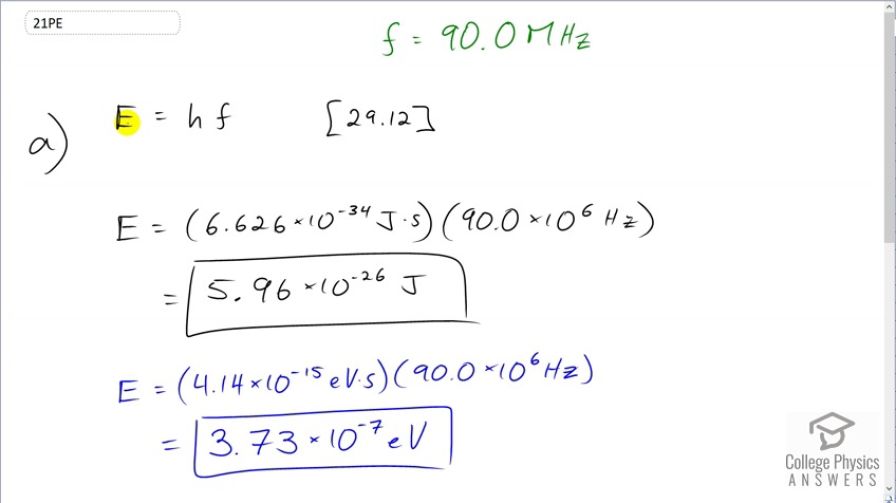 21PE
f = 90.0 MHz
a) E = h f [29.12]
E = (6.626 × 10⁻³⁴ J·s)(90.0 × 10⁶ Hz)
= 5.96 × 10⁻²⁶ J
E = (4.14 × 10⁻¹⁵ eV·s)(90.0 × 10⁶ Hz)
= 3.73 × 10⁻⁷ eV
College Physics
ANSWERS